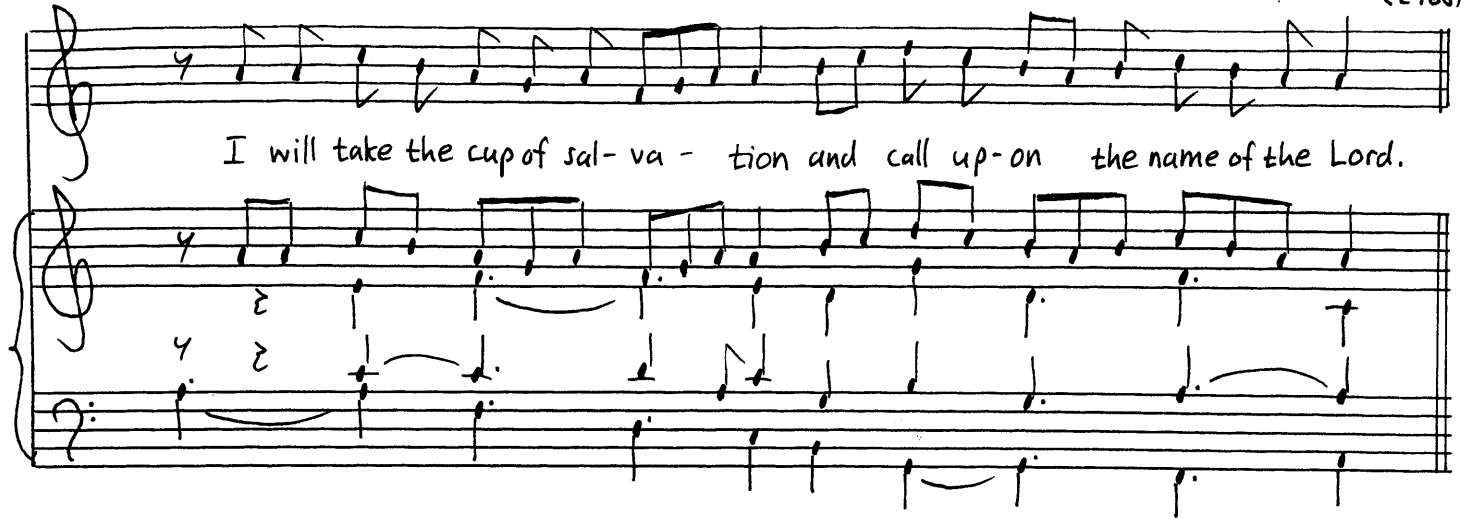 I will take the cup of sal- va - tion and call up-on the name of the Lord.